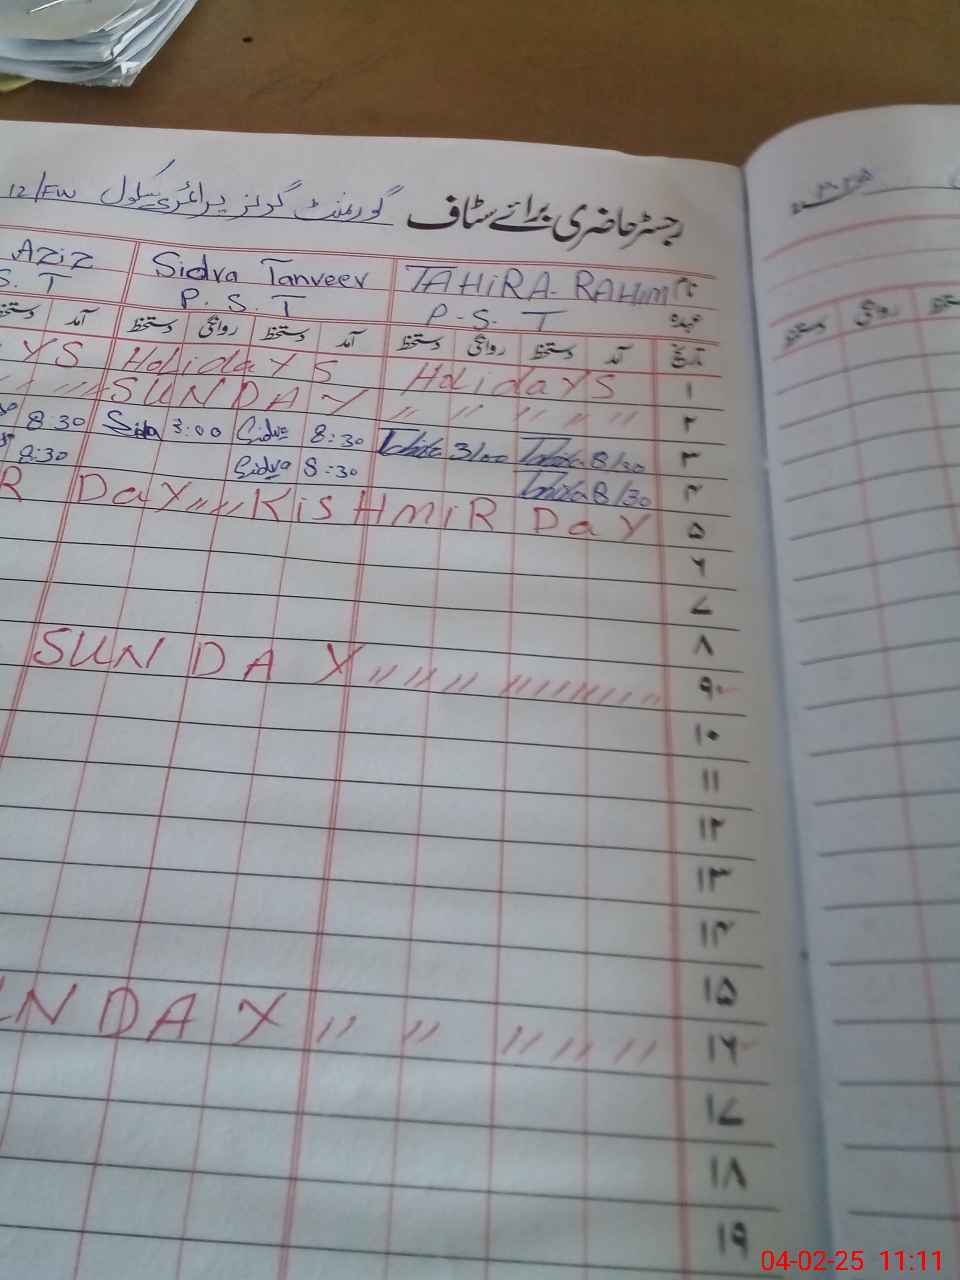 رجسٹر حاضری برائے سٹاف گورنمنٹ گرلز پرائمری سکول 12/FW
نام TAHiRA RAHiM Sidra Tanveer Aziz
عہدہ P.S.T P.S.T S.T
تاریخ آمد دستخط روانگی دستخط آمد دستخط روانگی دستخط آمد دستخط
۱ HolidaYS HolidaYS YS
۲ SUNDAY " " " " "
۳ Tahira 8/30 Tahira 3/00 8:30 Sidra 3:00 Sidra 8:30
۴ Tahira 8/30 8:30 Sidra 8:30
۵ R DaY " " KiSHMiR DaY
۶
۷
۸
۹ SUNDAY " " " " " " " "
۱۰
۱۱
۱۲
۱۳
۱۴
۱۵
۱۶ NDAY " " " " "
۱۷
۱۸
۱۹
دستخط روانگی
04-02-25 11:11